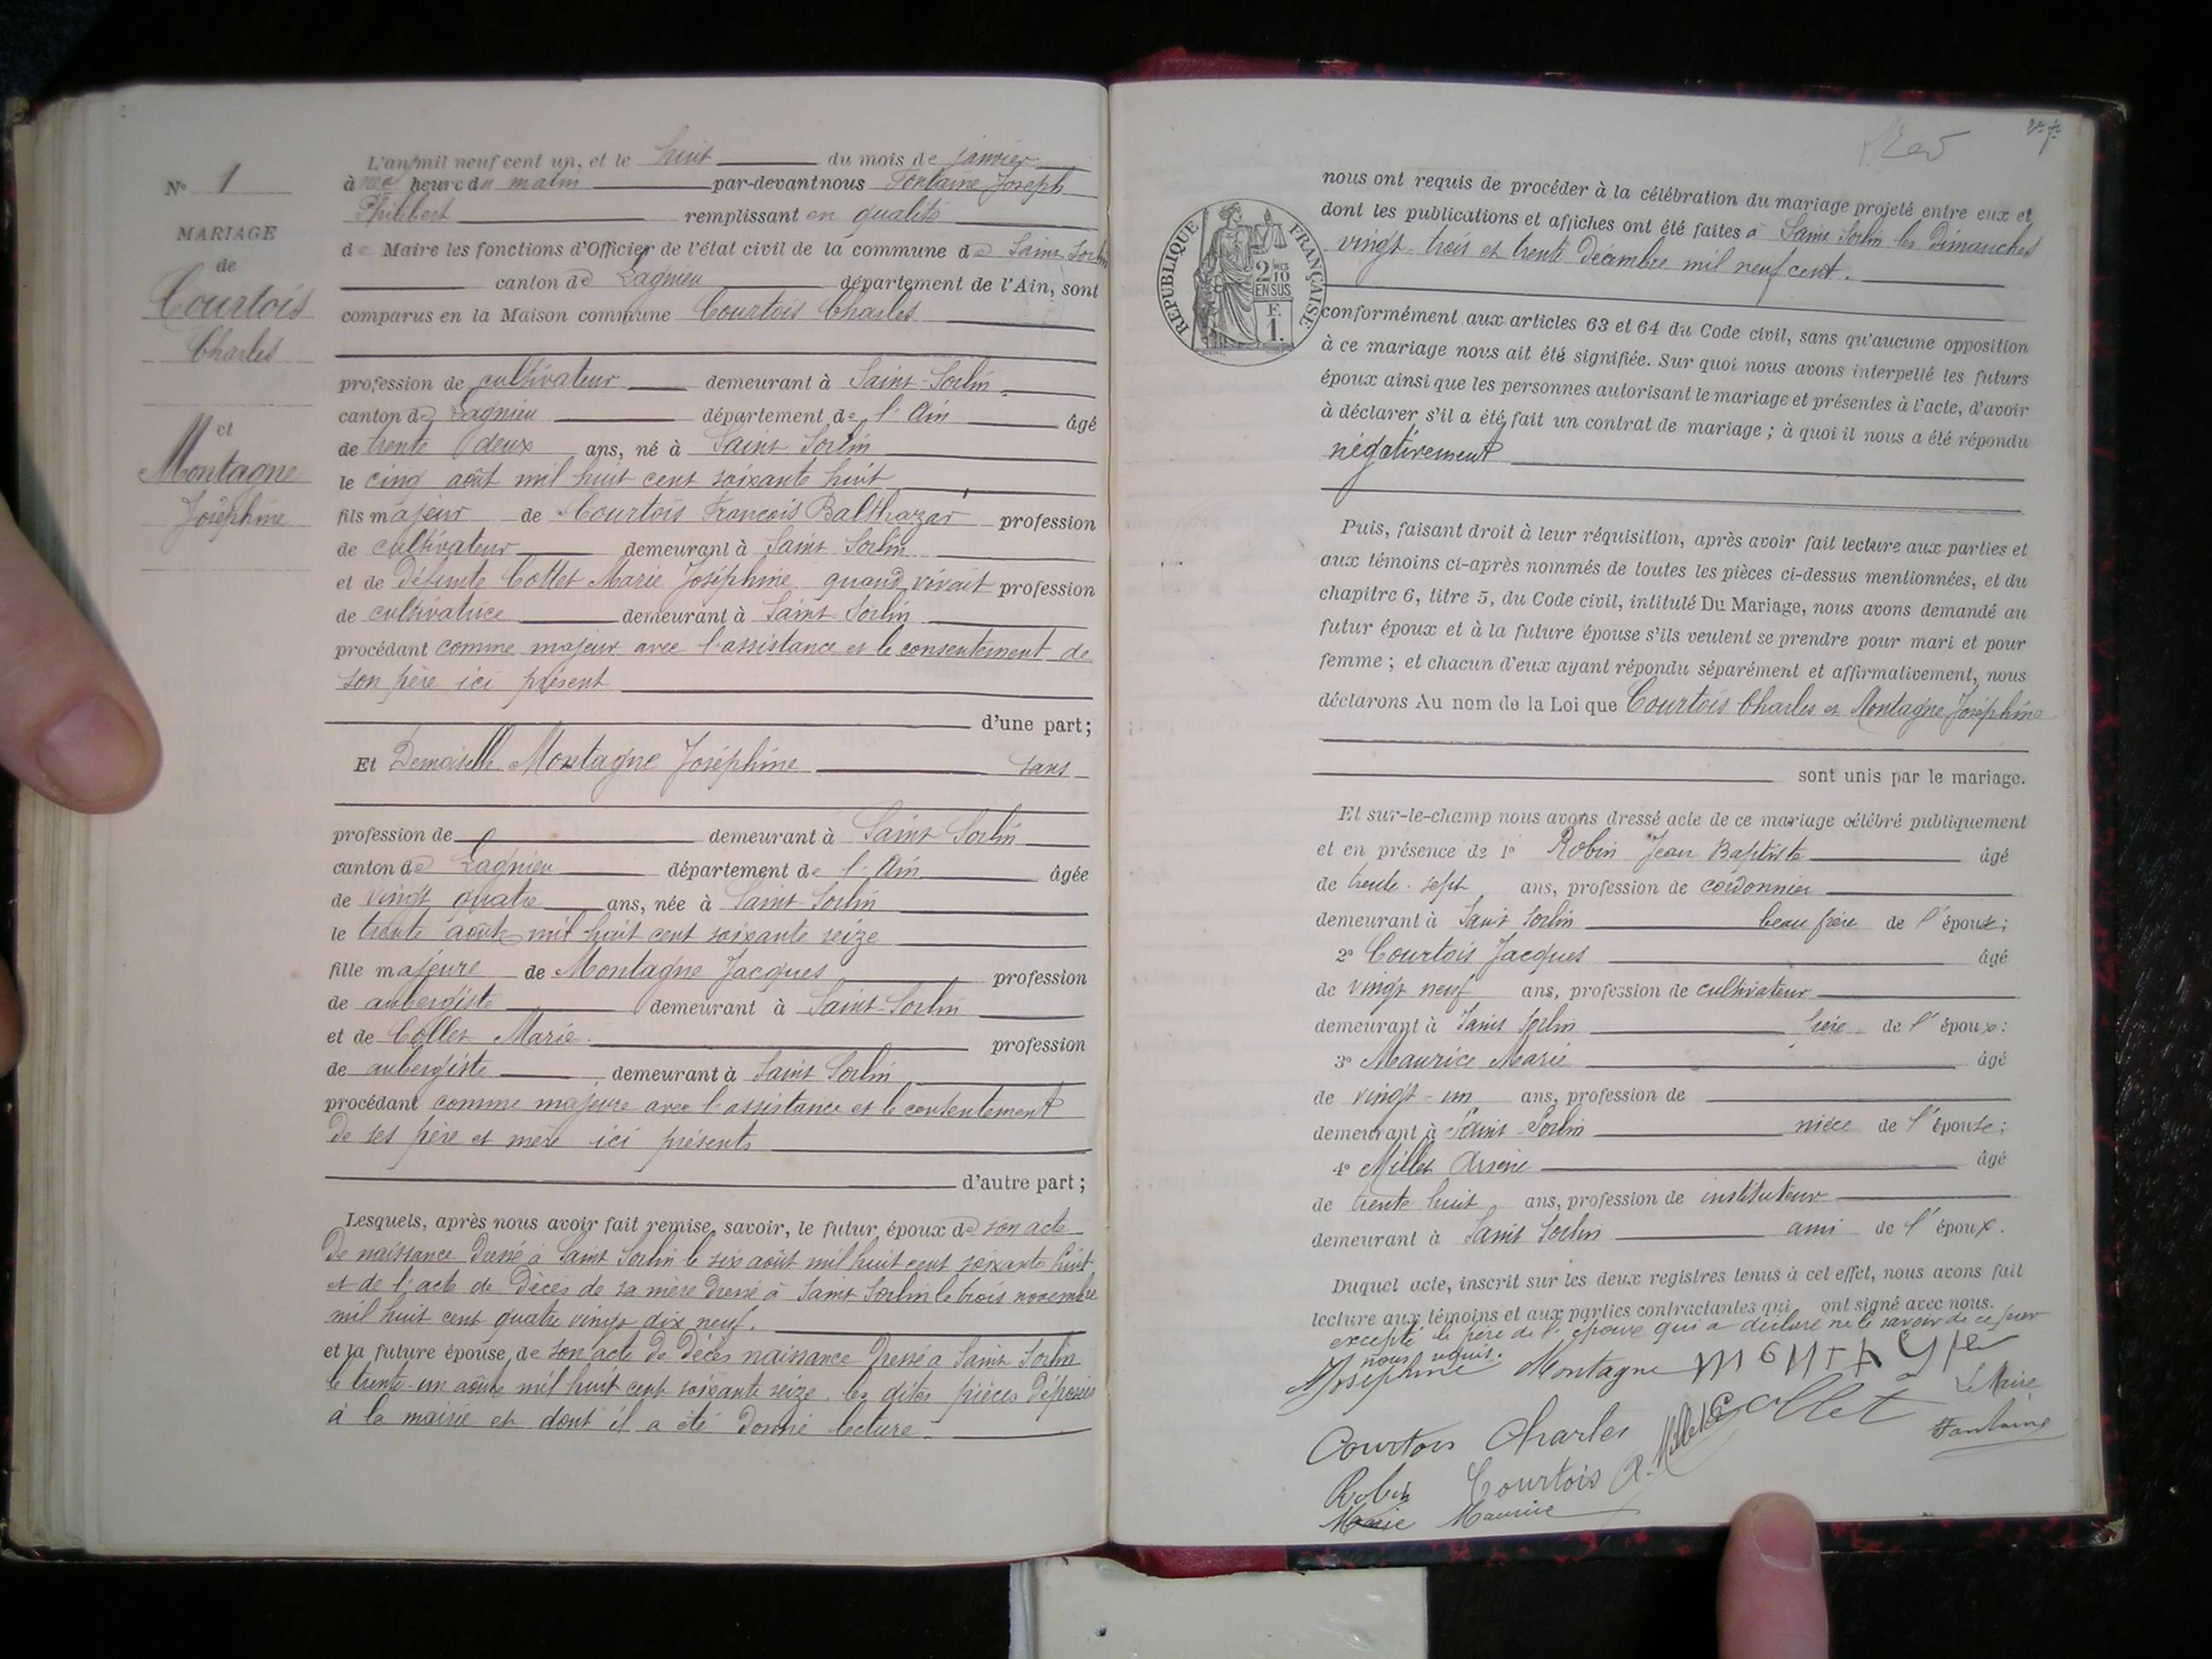 N° 1
MARIAGE
de
Courtois
Charles
et
Montagne
Joséphine
L'an mil neuf cent un, et le huit du mois de janvier
à heure du matin par-devant nous Fontaine Joseph
Philibert remplissant en qualité
de Maire les fonctions d'Officier de l'état civil de la commune de Saint Sorlin
canton de Lagnieu département de l'Ain, sont
comparus en la Maison commune Courtois Charles
profession de cultivateur demeurant à Saint-Sorlin
canton de Lagnieu département de l'Ain âgé
de trente deux ans, né à Saint Sorlin
le cinq août mil huit cent soixante huit
fils majeur de Courtois François Balthazar profession
de cultivateur demeurant à Saint Sorlin
et de défunte Collet Marie Joséphine quand vivait profession
de cultivatrice demeurant à Saint Sorlin
procédant comme majeur avec l'assistance et le consentement de
son père ici présent
d'une part;
Et Demoiselle Montagne Joséphine sans
profession de demeurant à Saint Sorlin
canton de Lagnieu département de l'Ain âgée
de vingt quatre ans, née à Saint-Sorlin
le trente août mil huit cent soixante seize
fille majeure de Montagne Jacques profession
de aubergiste demeurant à Saint-Sorlin
et de Collet Marie profession
de aubergiste demeurant à Saint Sorlin
procédant comme majeure avec l'assistance et le consentement
de ses père et mère ici présents
d'autre part;
Lesquels, après nous avoir fait remise, savoir, le futur époux de son acte
de naissance dressé à Saint Sorlin le six août mil huit cent soixante huit
et de l'acte de décès de sa mère dressé à Saint Sorlin le trois novembre
mil huit cent quatre vingt dix neuf.
et la future épouse, de son acte de décès naissance dressé à Saint Sorlin
le trente-un août mil huit cent soixante seize. les dites pièces déposées
à la mairie et dont il a été donné lecture.
RÉPUBLIQUE FRANÇAISE
2 MES 10 EN SUS
F. 1.
nous ont requis de procéder à la célébration du mariage projeté entre eux et
dont les publications et affiches ont été faites à Saint Sorlin les Dimanches
vingt-trois et trente Décembre mil neuf cent.
conformément aux articles 63 et 64 du Code civil, sans qu'aucune opposition
à ce mariage nous ait été signifiée. Sur quoi nous avons interpellé les futurs
époux ainsi que les personnes autorisant le mariage et présentes à l'acte, d'avoir
à déclarer s'il a été fait un contrat de mariage; à quoi il nous a été répondu
négativement
Puis, faisant droit à leur réquisition, après avoir fait lecture aux parties et
aux témoins ci-après nommés de toutes les pièces ci-dessus mentionnées, et du
chapitre 6, titre 5, du Code civil, intitulé Du Mariage, nous avons demandé au
futur époux et à la future épouse s'ils veulent se prendre pour mari et pour
femme; et chacun d'eux ayant répondu séparément et affirmativement, nous
déclarons Au nom de la Loi que Courtois Charles et Montagne Joséphine
sont unis par le mariage.
Et sur-le-champ nous avons dressé acte de ce mariage célébré publiquement
et en présence de 1° Robin Jean Baptiste âgé
de trente-sept ans, profession de cordonnier
demeurant à Saint Sorlin beau frère de l'épouse;
2° Courtois Jacques âgé
de vingt neuf ans, profession de cultivateur
demeurant à Saint Sorlin frère de l'époux:
3° Maurice Marie âgé
de vingt-un ans, profession de
demeurant à Saint-Sorlin nièce de l'épouse;
4° Millet Arsène âgé
de trente huit ans, profession de instituteur
demeurant à Saint Sorlin ami de l'époux.
Duquel acte, inscrit sur les deux registres tenus à cet effet, nous avons fait
lecture aux témoins et aux parties contractantes qui ont signé avec nous.
excepté le père de l'époux qui a déclaré ne le savoir de ce par
nous requis.
Joséphine Montagne Montagne
Le Maire
Courtois Charles A. Millet Collet Fontaine
Robin Courtois
Marie Maurice